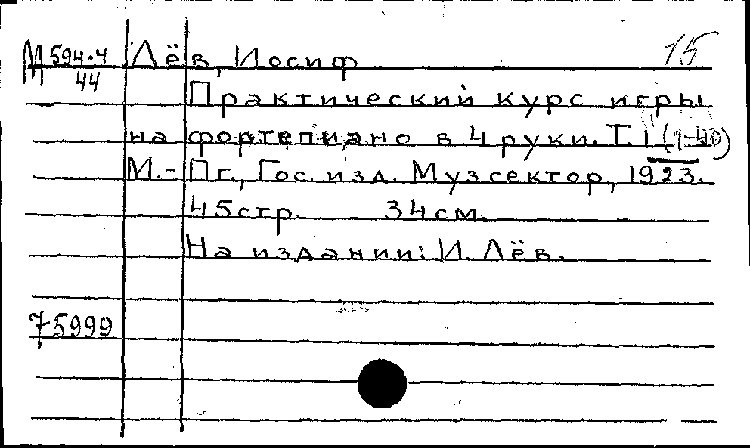 М 594-4 Лёв, Иосиф 15
44
Практический курс игры
на фортепиано в 4 руки. Т. 1 (1-40)
М.-Пг., Гос. изд. Музсектор, 1923.
45стр. 34см.
На издании: И. Лёв.
75999